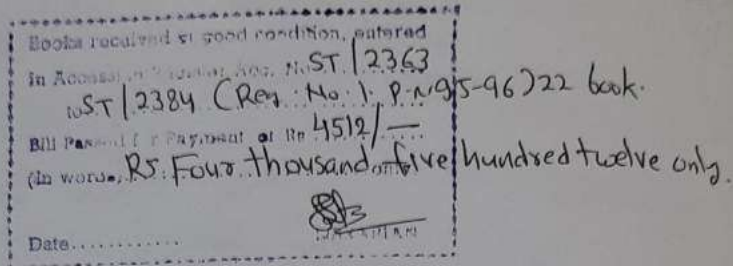 Books received in good condition, entered
in Accession Register Acc. No. ST/2363
to ST/2384 (Reg. No. 1. P. N. 95-96) 22 book.
Bill Passed for Payment of Rs 4512/—
(in words, Rs. Four thousand five hundred twelve only.
Date............
LIBRARIAN